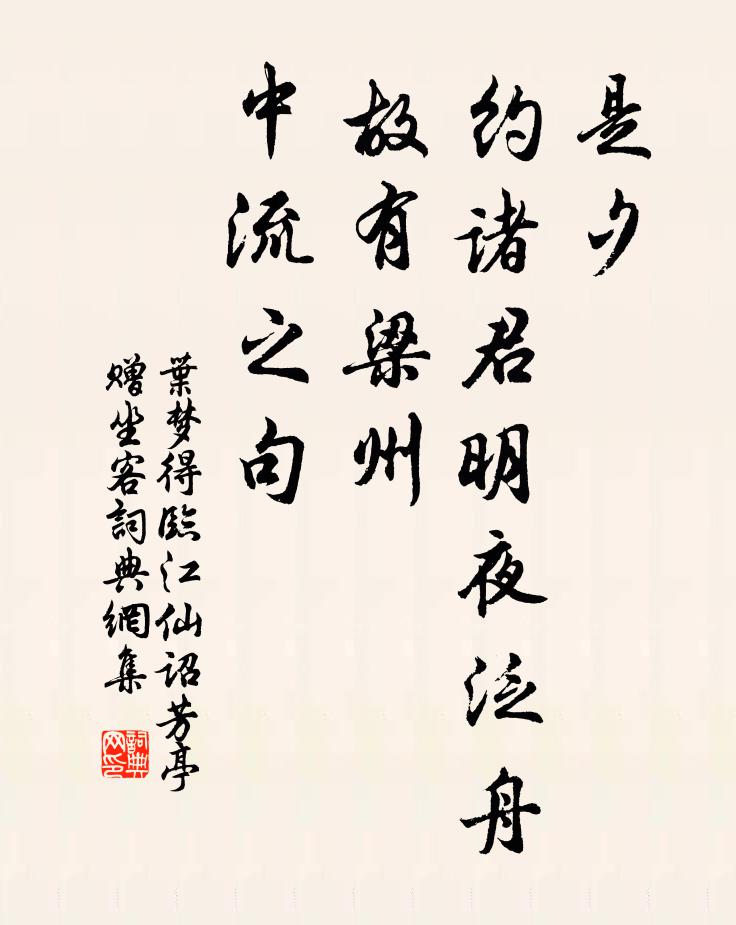 是夕
约诸君明夜泛舟
故有梁州
中流之句
葉梦得臨江仙诏芳亭
赠坐客詞典網集
詞典网印